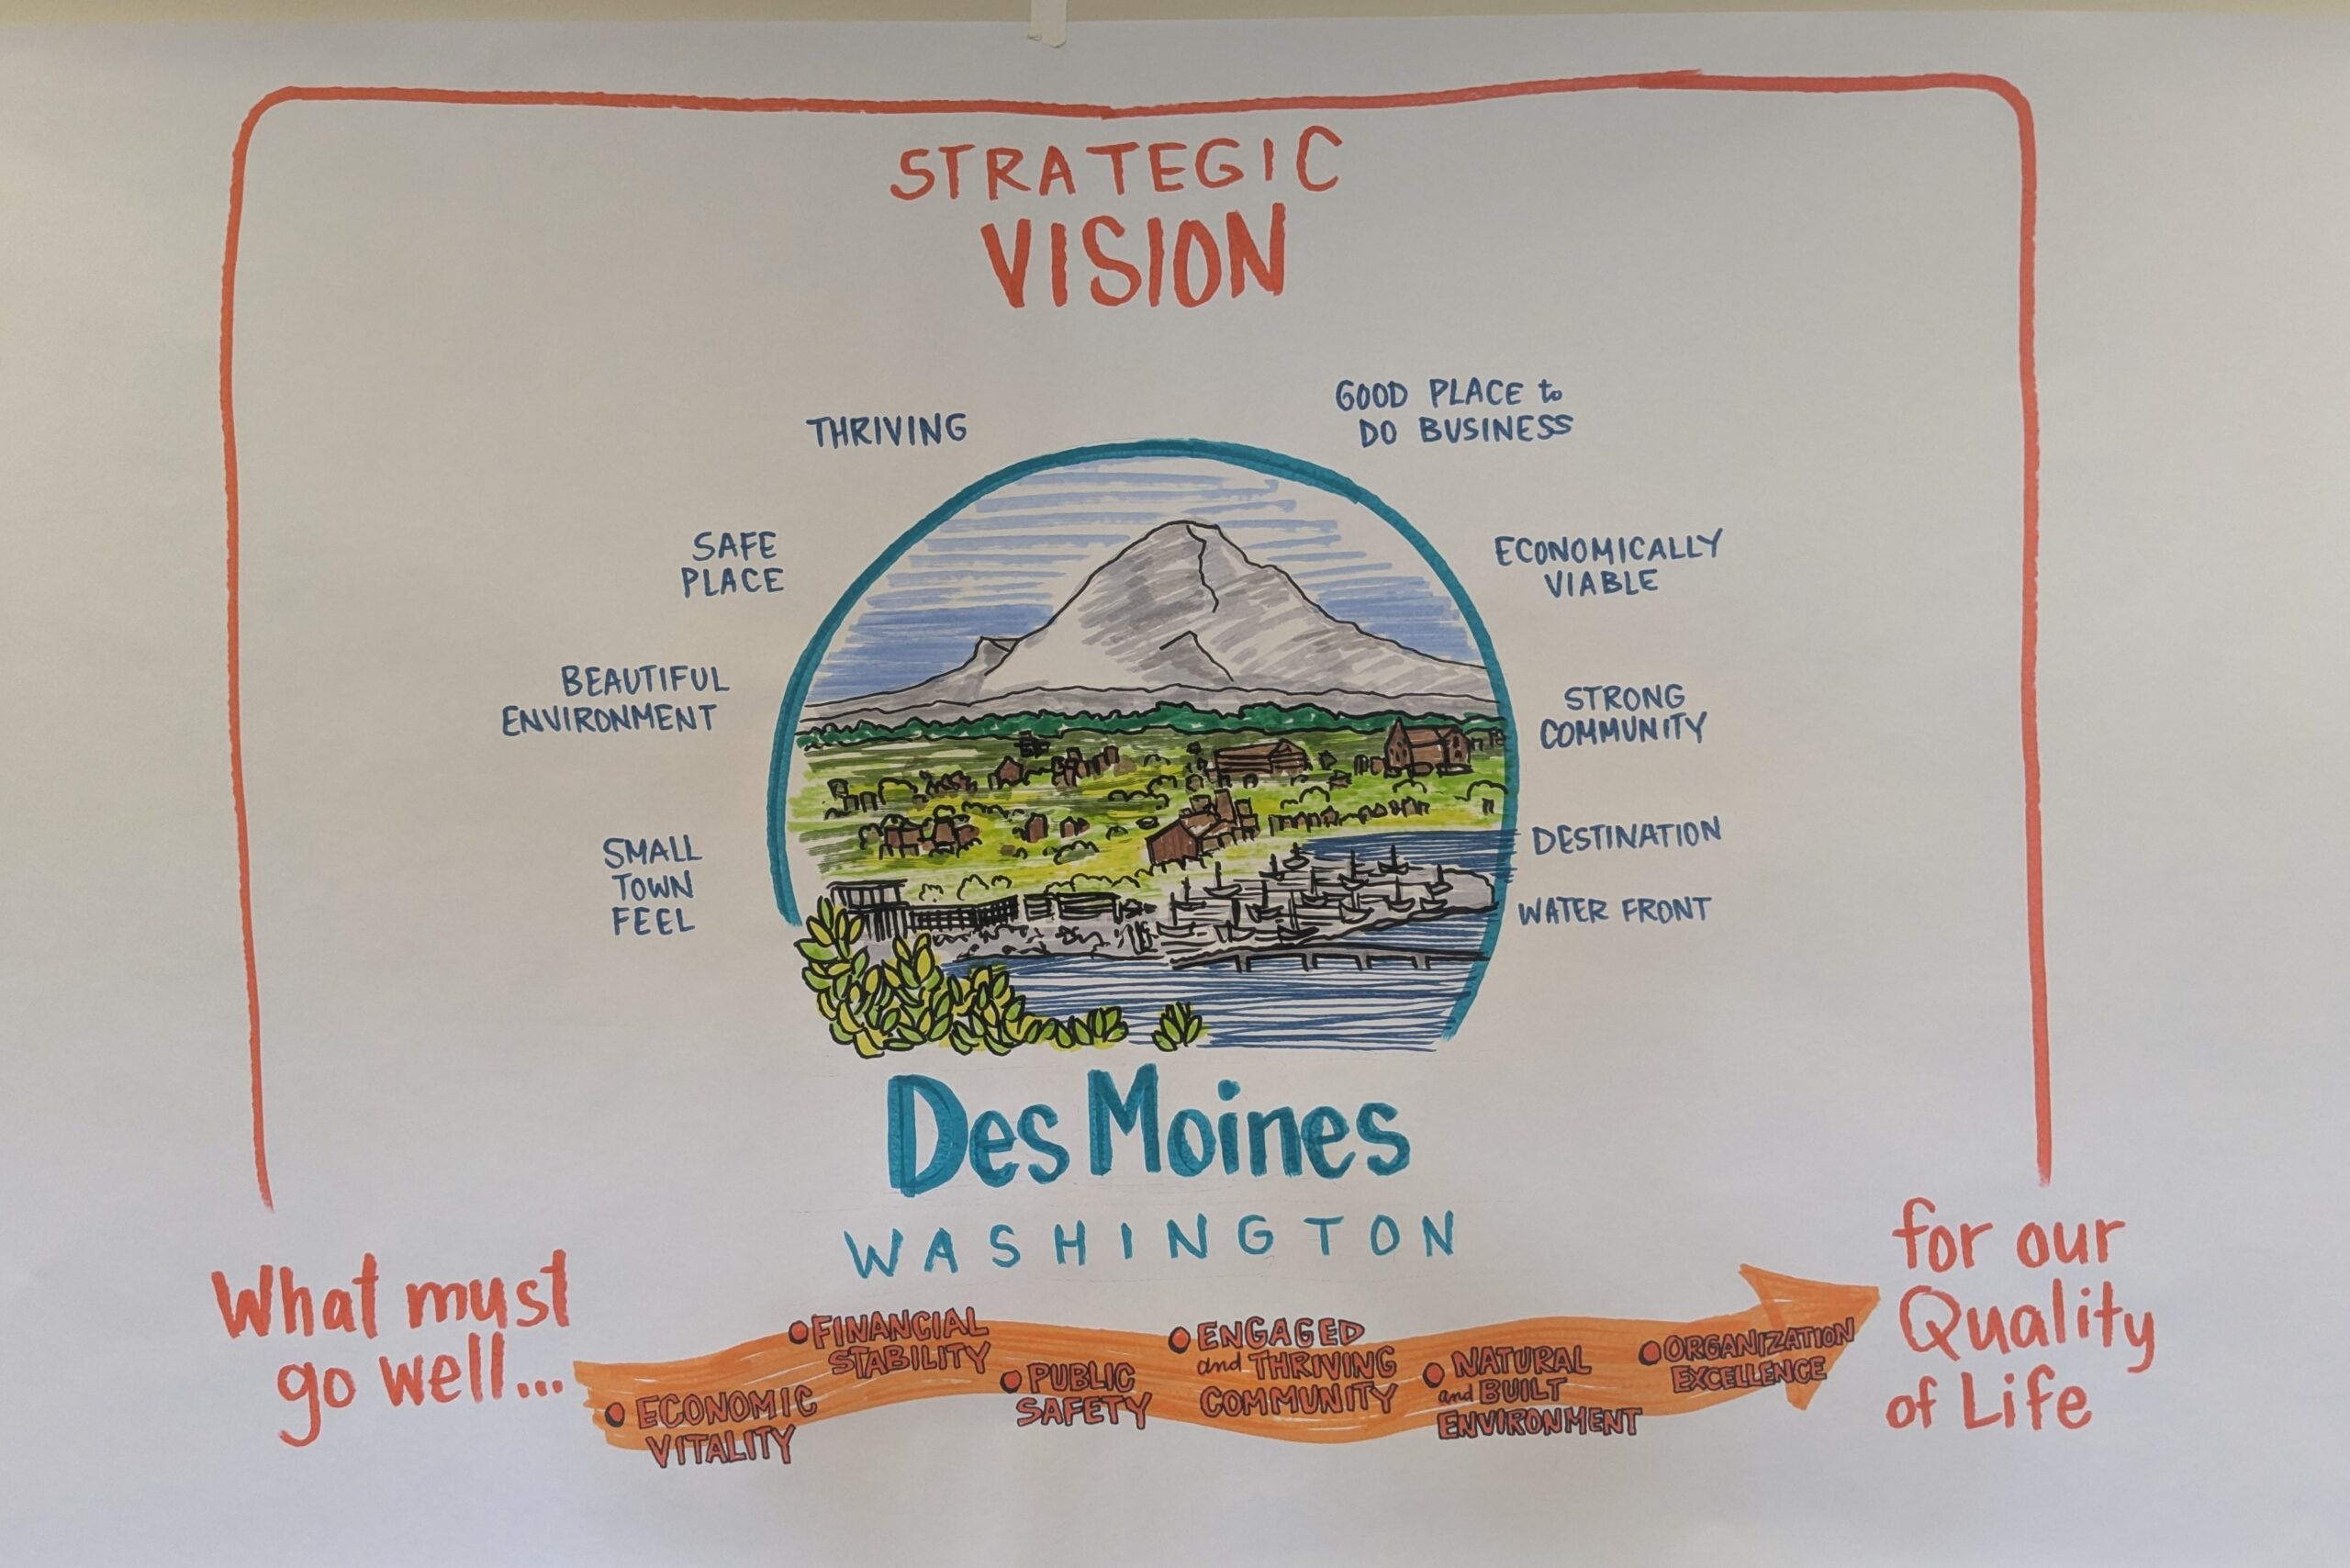 STRATEGIC
VISION
THRIVING
GOOD PLACE to
DO BUSINESS
SAFE
PLACE
ECONOMICALLY
VIABLE
BEAUTIFUL
ENVIRONMENT
STRONG
COMMUNITY
SMALL
TOWN
FEEL
DESTINATION
WATER FRONT
Des Moines
WASHINGTON
What must
go well...
ECONOMIC
VITALITY
FINANCIAL
STABILITY
PUBLIC
SAFETY
ENGAGED
and THRIVING
COMMUNITY
NATURAL
and BUILT
ENVIRONMENT
ORGANIZATION
EXCELLENCE
for our
Quality
of Life